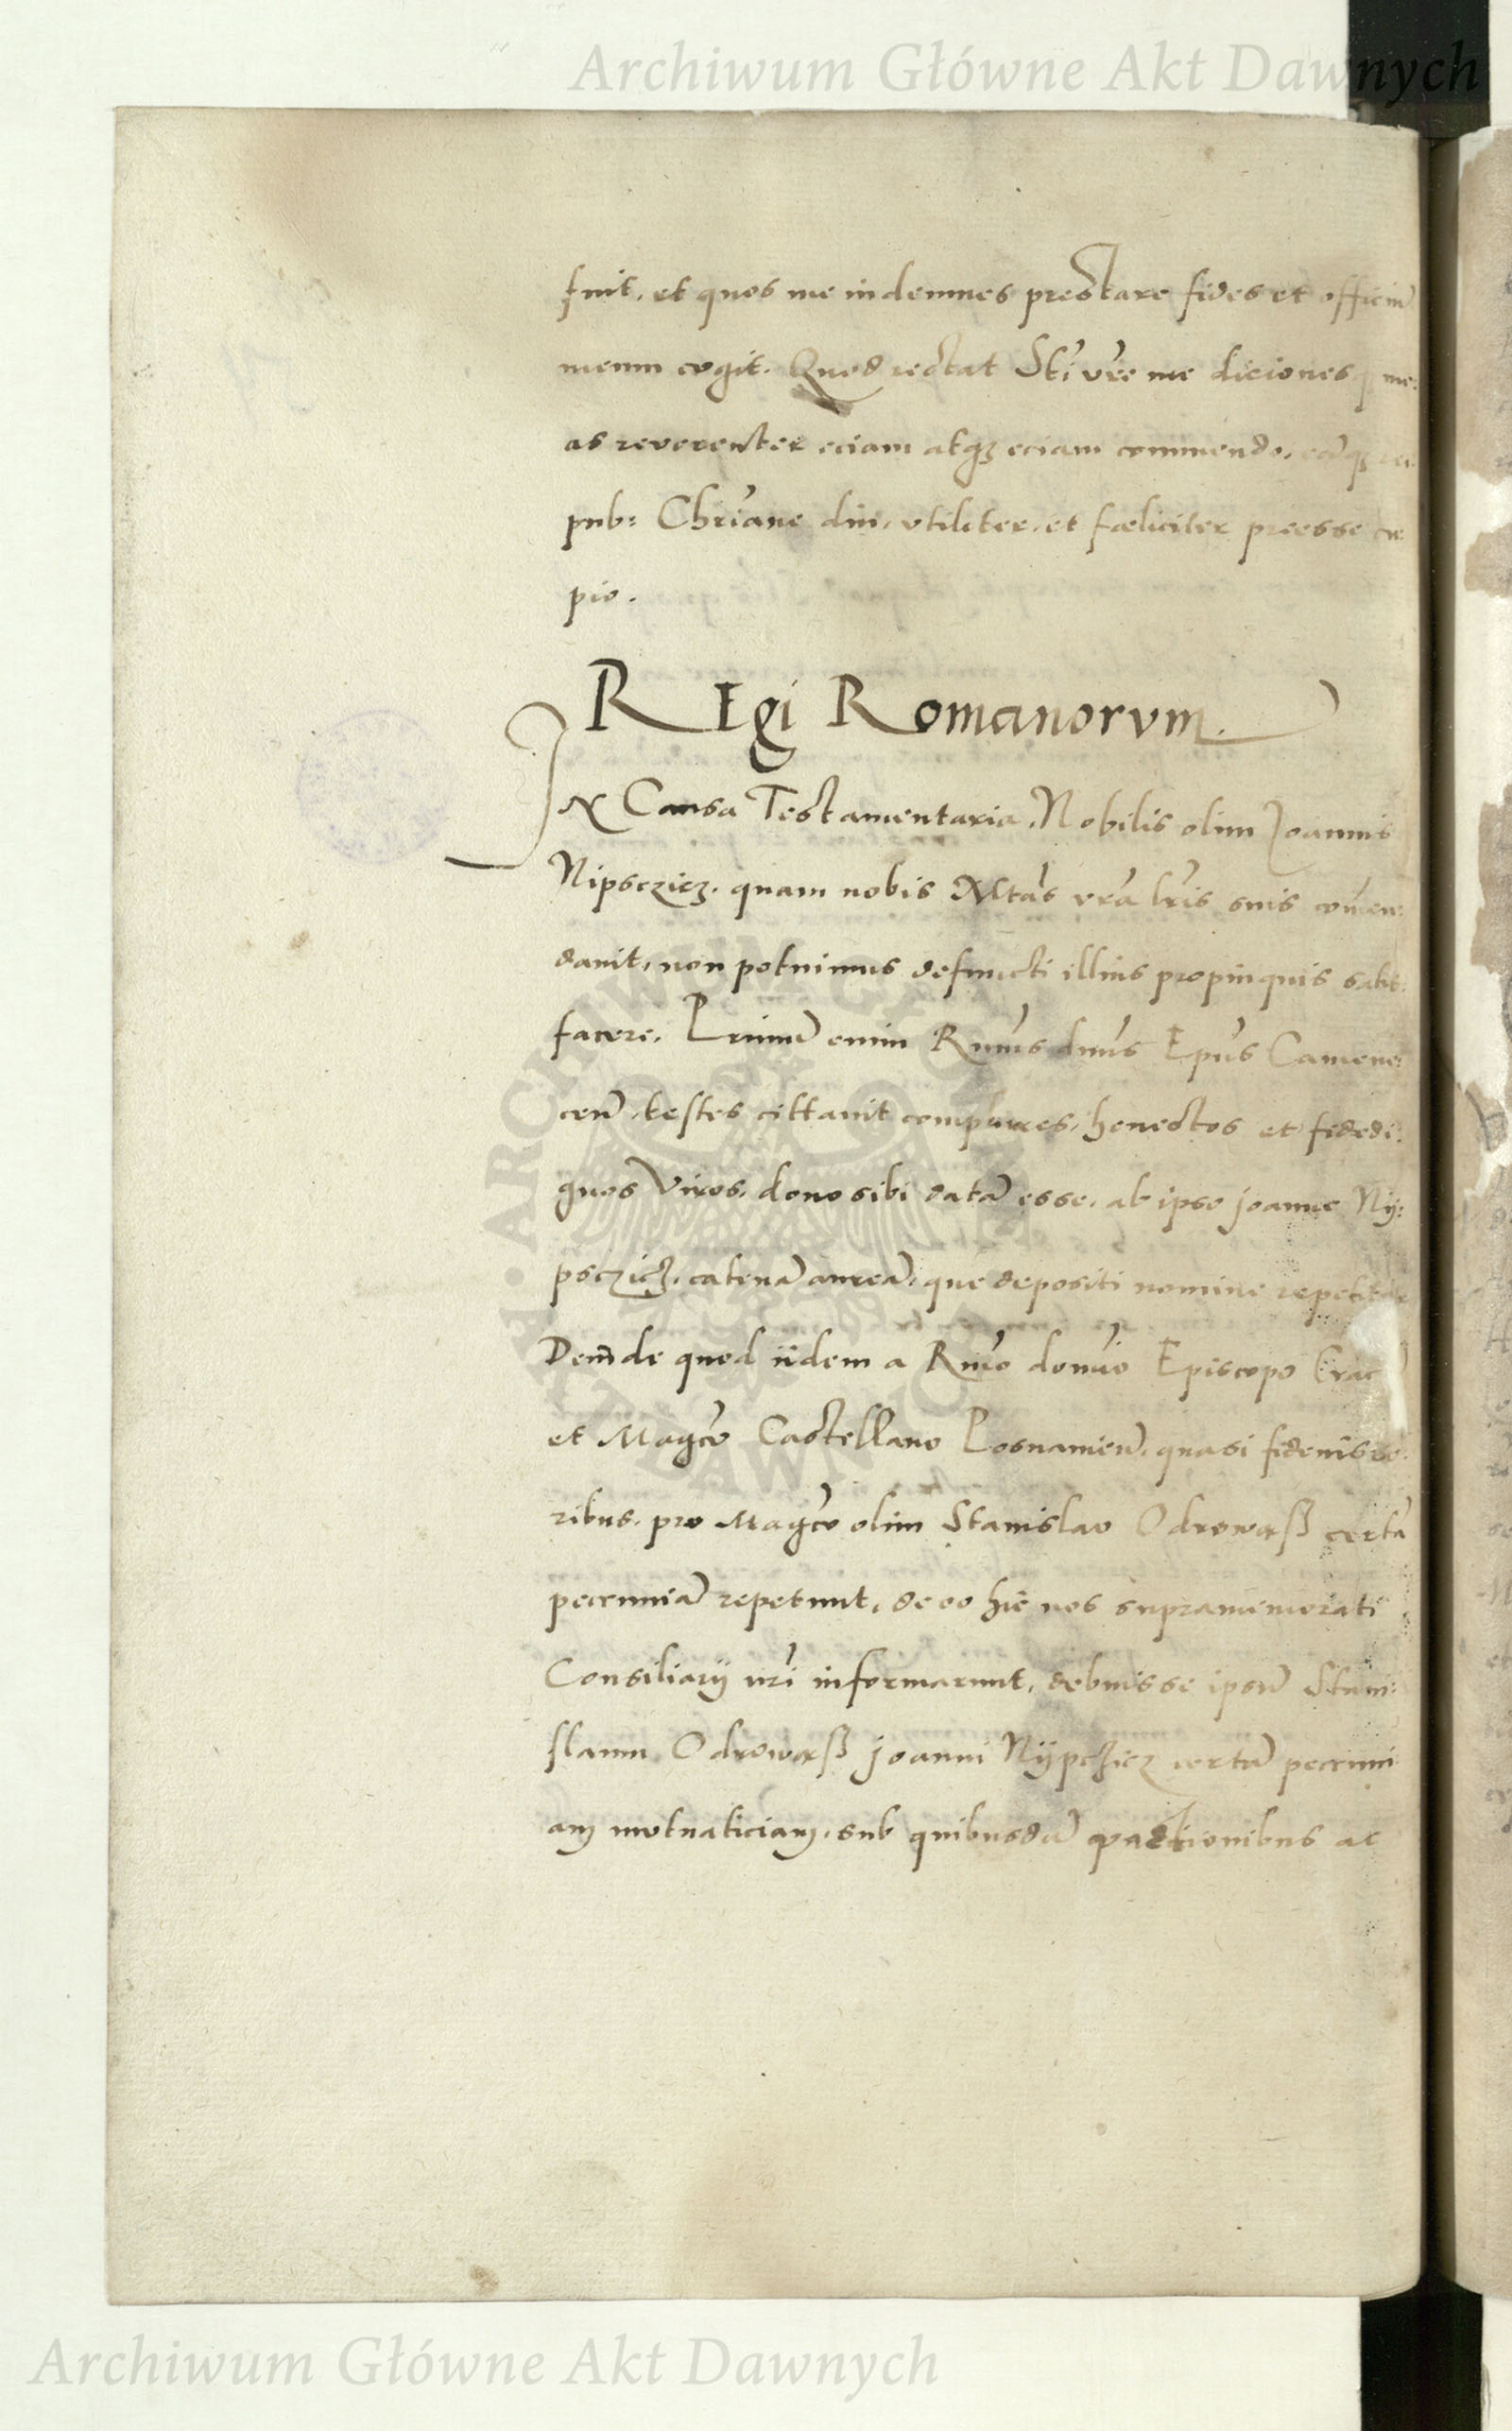 Archiwum Główne Akt Dawnych
fuit, et quos me indemnes prestare fides et officiũ
meum cogit. Quod restat Stĩ vrẽ me dicionesq me:
as reverenter eciam atqz eciam commendo, eãqz
pub: Chrĩane diu, vtiliter, et fœliciter preesse cu
pio.
REgi Romanorvm.
IN Causa Testamentaria Nobilis olim Joannis
Nipsczicz, quam nobis Mtãs vrã lrĩs suis com̃en:
davit, non potuimus defuncti illius propinquis satis:
facere. Primũ enim Rmũs dnũs Epũs Camene:
ceñ, testes cittavit complures, honestos et fidedi:
gnos Viros, dono sibi datã esse, ab ipso Joanne Ny:
psczicz, catenã aureã, que depositi nomine repetitur
Deinde quod iidem a Rmõ domĩo Episcopo Crac
et Magcõ Castellano Posnanieñ, quasi fideiusso:
ribus, pro Magcõ olim Stanislao Odrowasß certã
pecuniã repetunt, de eo hic nos supramemorati
Consiliarij nrĩ informarunt, debuisse ipsũ Stani:
slaum Odrowasß Joanni Nijpczicz certã pecuni
am mutuaticiam, sub quibusdã pactionibus ac
Archiwum Główne Akt Dawnych